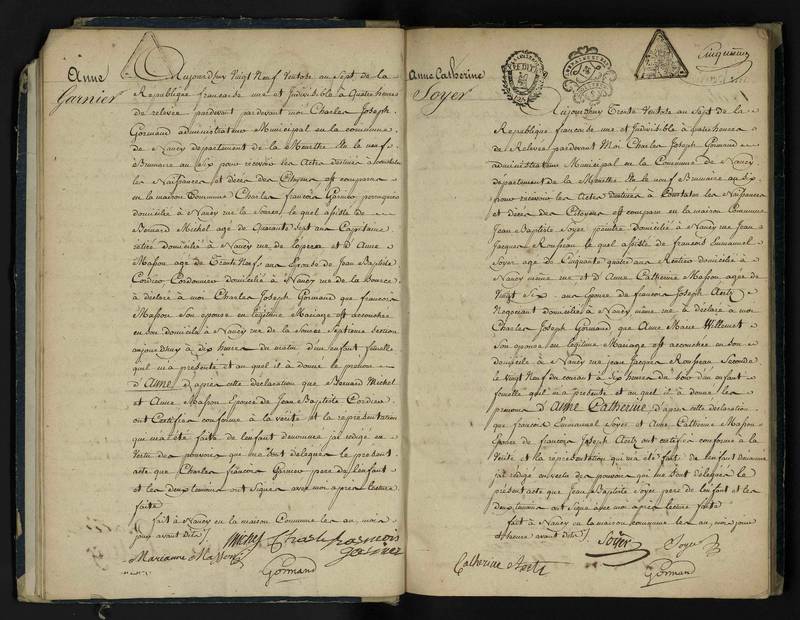 Anne
Garnier
Aujourdhuy Vingt Neuf Ventose an Sept de la
Republique francaise une et Indivisible à Quatre heures
de relevée pardevant pardevant moi Charles Joseph
Gormand administrateur Municipal en la commune
de Nancy département de la Meurthe élu le neuf
Brumaire an Six pour recevoir les Actes destinés à constater
les Naissances et décès des Citoyens est comparu
en la maison Commune Charles francois Garnier perruquier
domicilié à Nancy rue la Source, le quel assisté de
Bernard Michel agé de Quarante Sept ans Capitaine
retiré domicilié à Nancy rue de l'opera et D'Anne
Masson agé de Trente Neuf ans Epouse de Jean Baptiste
Cordier Cordonnier domiciliée à Nancy rue de la Source
à déclaré à moi Charles Joseph Gormand que francoise
Masson Son epouse en légitime Mariage est accouchée
en son domicile à Nancy rue de la Source Septieme Section
aujourdhuy à dix heures du matin d'un Enfant femelle
qu'il m'a présenté et au quel il à donné le prenom
d'Anne, d'après cette déclaration que Bernard Michel
et Anne Masson Epouse de Jean Baptiste Cordier
ont Certifiée conforme à la vérité et la représentation
qui m'a été faite de l'enfant dénommé j'ai redigé en
Vertu des pouvoirs qui me sont délégués le présent
acte que Charles francois Garnier pere de l'enfant
et les deux temoins ont Signé avec moi apres lecture
faite
fait à Nancy en la maison Commune les an, mois
jour avant dits
Charle francois
garnier
Marianne Masson
Gormand
Anne Catherine
Soyer
Aujourdhuy Trente Ventose an Sept de la
Republique francaise une et Indivisible à quatre heures
de Relevée pardevant Moi Charles Joseph Gormand
administrateur Municipal en la Commune de Nancy
département de la Meurthe élu le neuf Brumaire an Six
pour recevoir les Actes destinés à Constater les Naissances
et décès des Citoyens est comparu en la maison Commune
Jean Baptiste Soyer peintre domicilié à Nancy rue Jean
Jacques Rousseau le quel assisté de francois Emmanuel
Soyer agé de Cinquante quatre ans Rentier domicilié à
Nancy même rue et d'Anne Catherine Masson agée de
Vingt Six ans Epouse de francois Joseph Aertz
Negociant domiciliée à Nancy même rue à déclaré à moi
Charles Joseph Gormand que Anne Marie Willemet
Son epouse en légitime Mariage est accouchée en son
domicile à Nancy rue jean Jacques Rousseau Seconde
le Vingt Neuf du courant à Dix heures du Soir d'un enfant
femelle qu'il m'a présenté et au quel il à donné les
prenoms D'Anne Catherine, d'apres cette déclaration
que francois Emmanuel Soyer et Anne Catherine Masson
Epouse de francois Joseph Aertz ont certifiée conforme à la
Vérité et la réprésentation qui m'a été faite de l'enfant dénommé
j'ai redigé en vertu des pouvoirs qui me sont délégués le
présent acte que Jean Baptiste Soyer pere de l'enfant et les
deux temoins ont signé avec moi apres lecture faite
fait à Nancy en la maison commune les an, mois jour
et heure avant dits
Soyer
Soyer
Catherine Aertz
Gormand